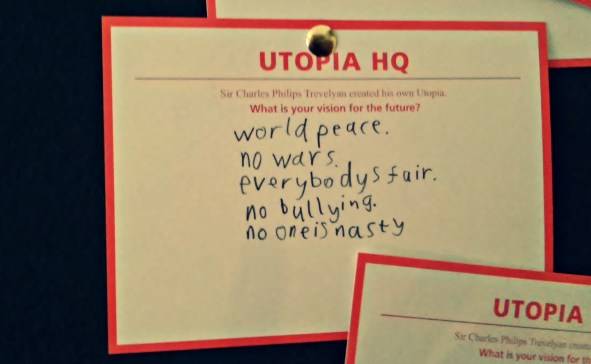 UTOPIA HQ
Sir Charles Philips Trevelyan created his own Utopia.
What is your vision for the future?
world peace.
no wars.
everybodys fair.
no bullying.
no one is nasty
UTOPIA
Sir Charles Philips Trevelyan
What is your vision for